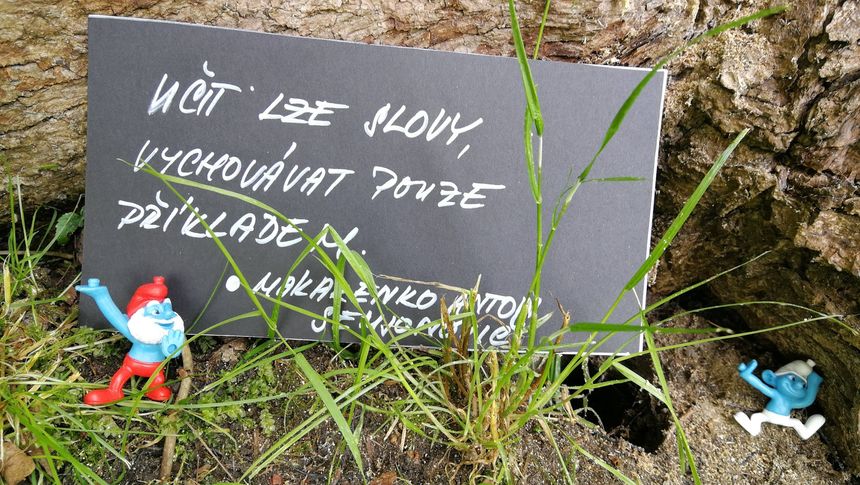 UČIT LZE SLOVY,
VYCHOVÁVAT POUZE
PŘÍKLADEM.
• MAKARENKO ANTON